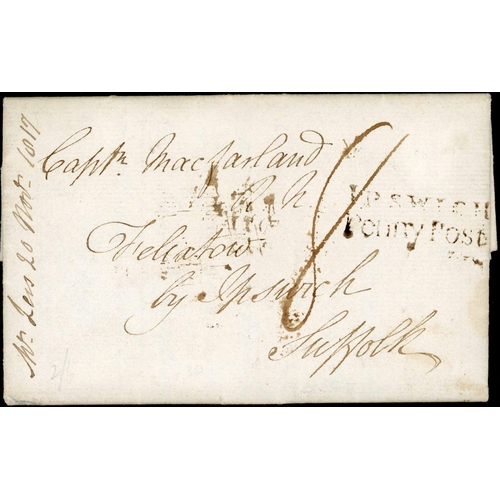 Captn. Macfarland
R. N.
Felixtow
by Ipswich
Suffolk
IPSWICH
Penny Post
Mr. Jens 20 Novr. 1817
2/